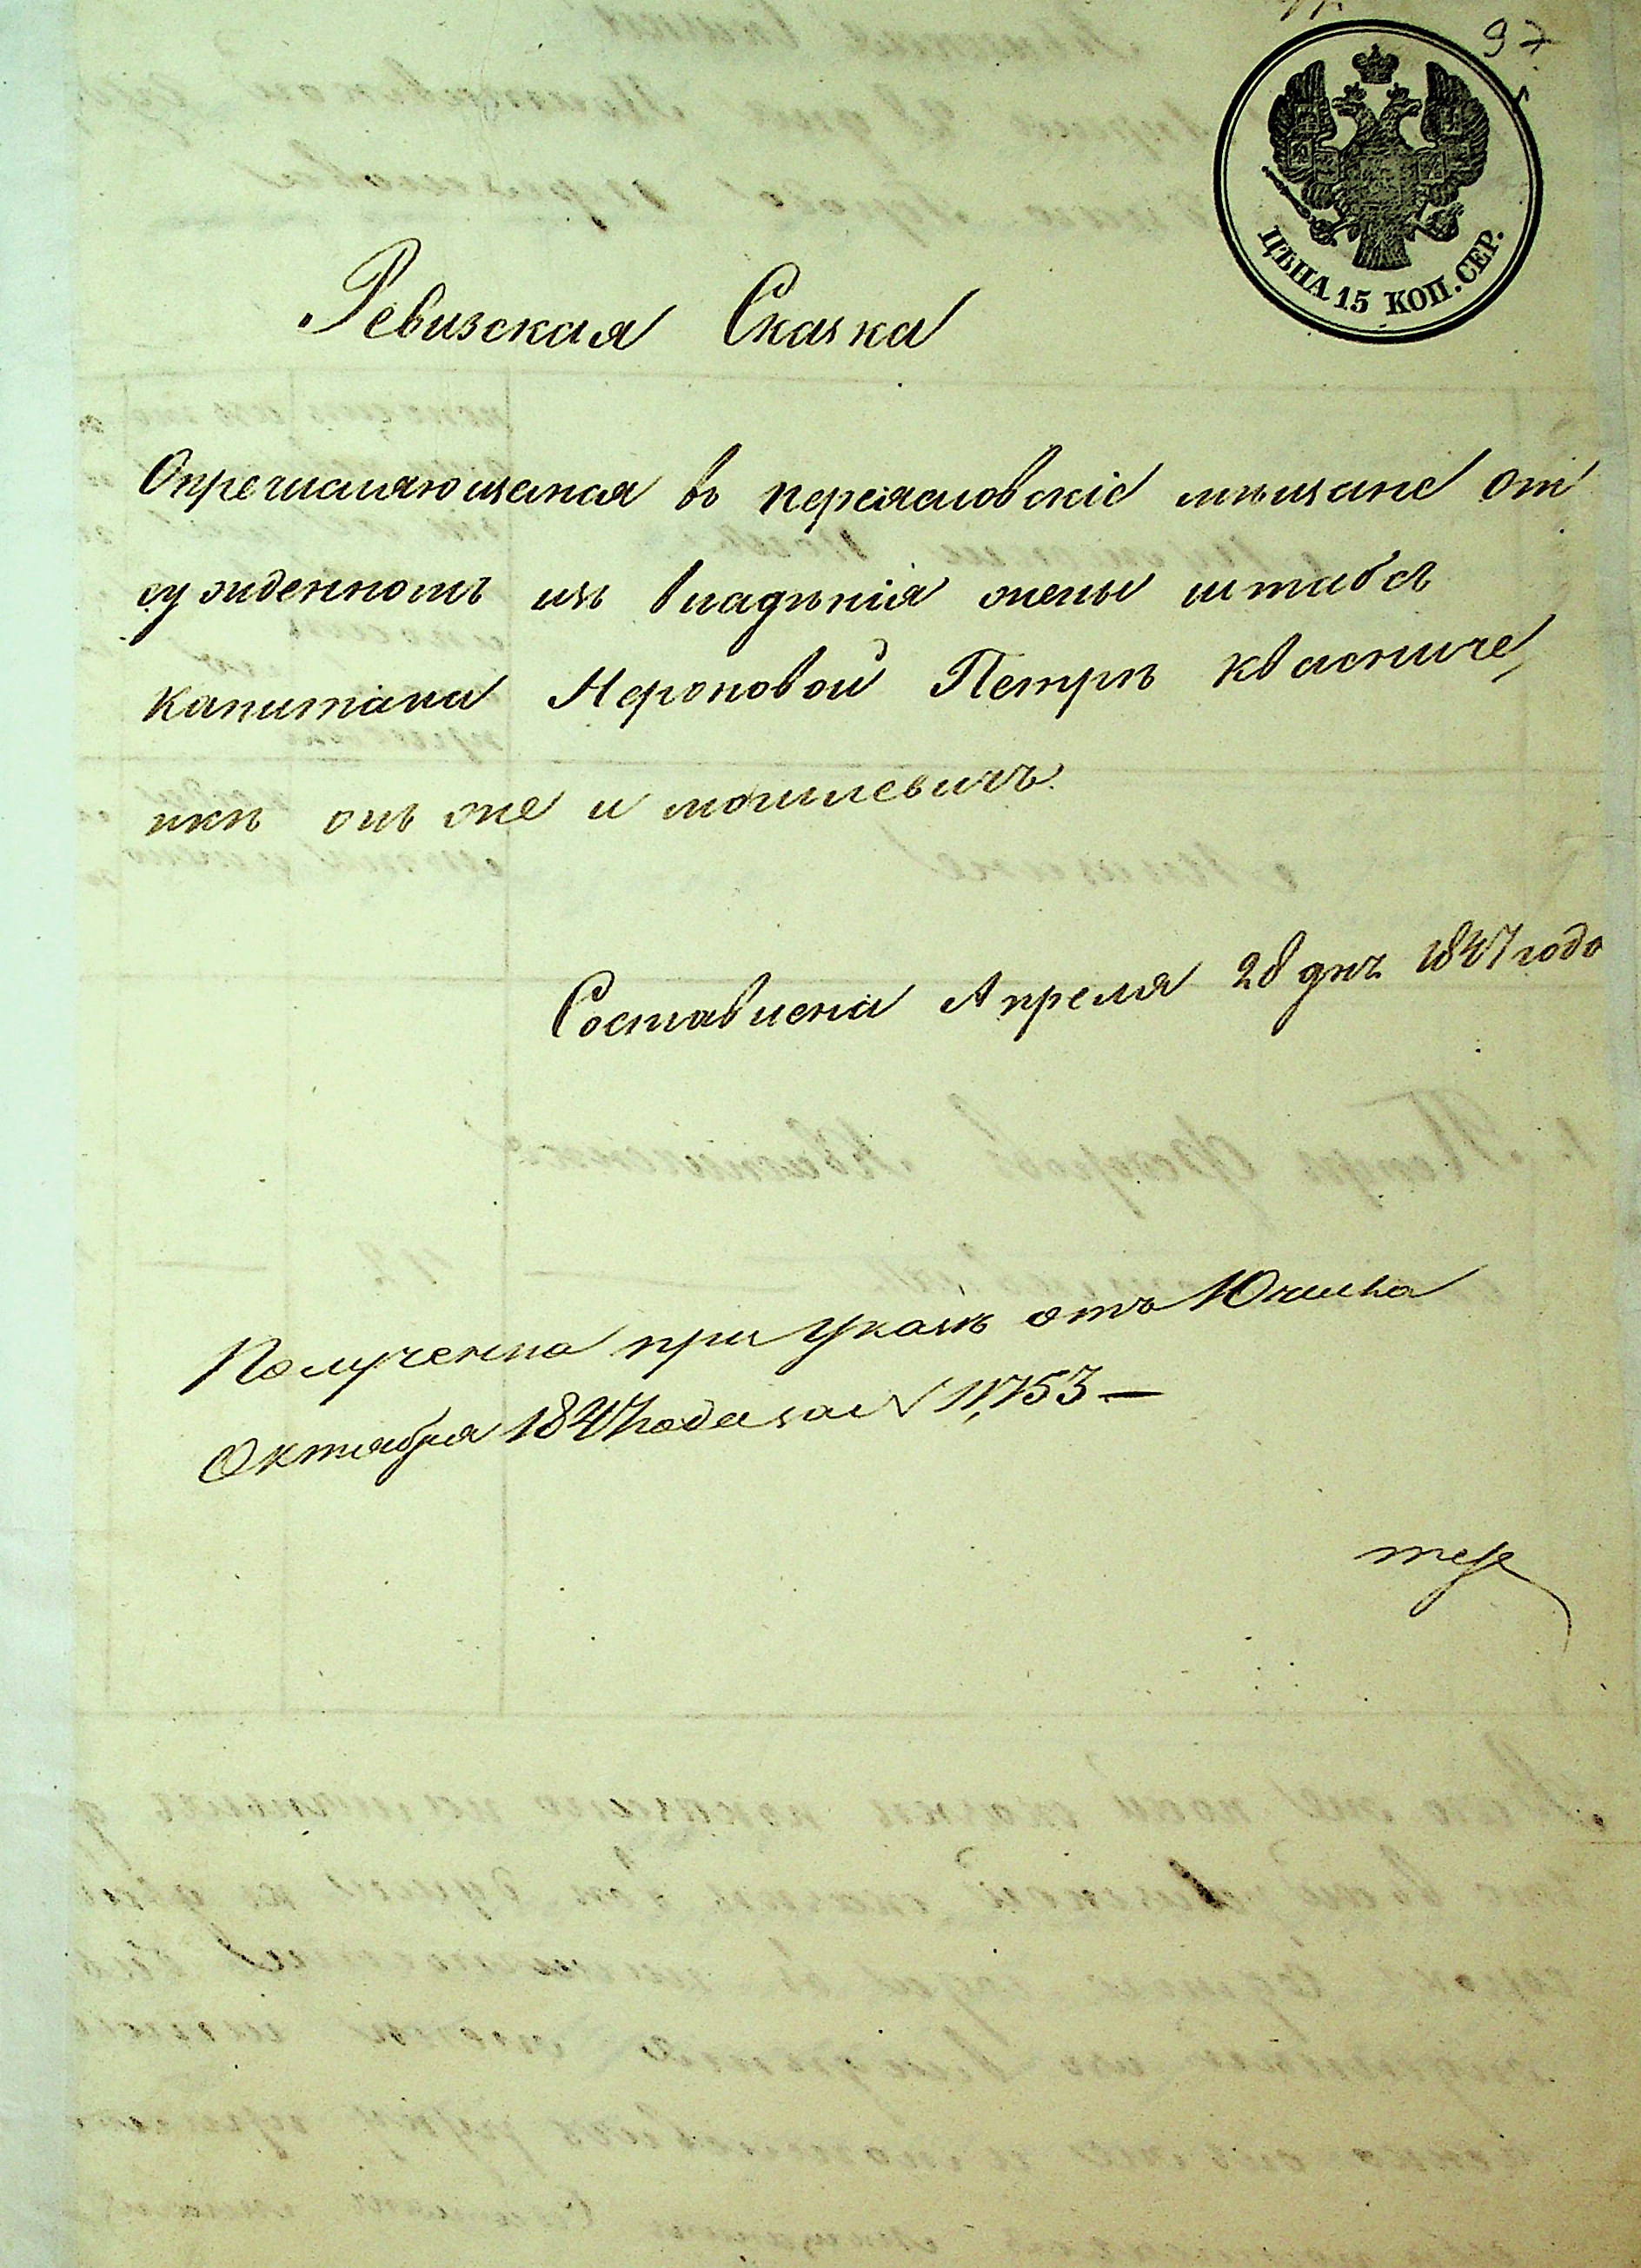 97
ЦѢНА 15 КОП. СЕР.
Ревизская Сказка
О пречисляющемся въ переяславскіе мѣщане от
сужденномъ изъ владѣнія жены штабсъ
капитана Нероновой Петрѣ Квасниче,
нкѣ онъ же и могилевичъ
Составлена Апреля 28 дня 1847 года
Полученна при указѣ отъ 10 числа
Октября 1847 года за N 11,753 —